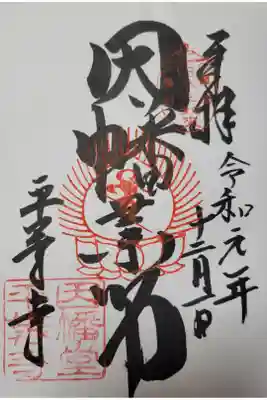 奉拝
令和元年
十二月一日
因幡薬師
平等寺
因幡堂
平等寺